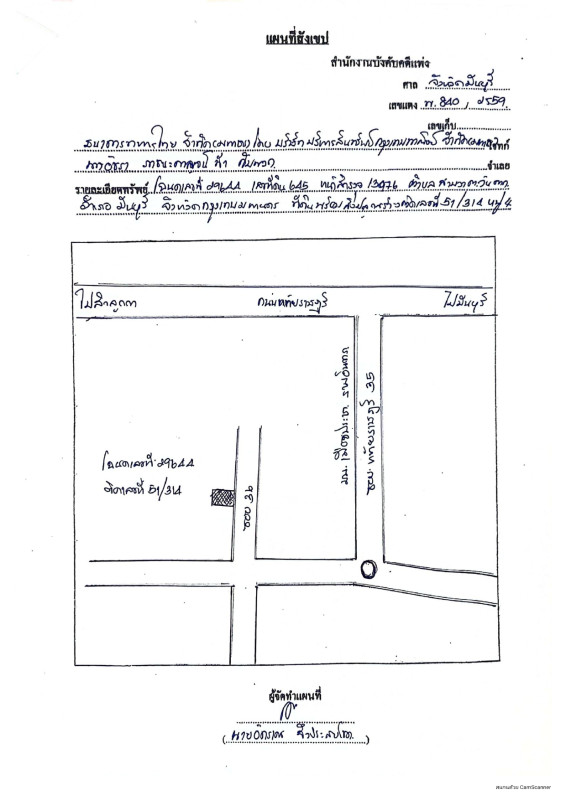 แผนที่สังเขป
สำนักงานบังคับคดีแพ่ง
ศาล จังหวัดมีนบุรี
เลขแดง พ.840 / 2559
เลขเก็บ
ธนาคารทหารไทย จำกัด(มหาชน) โดย บริษัท บริหารสินทรัพย์กรุงเทพพาณิชย์ จำกัด(มหาชน) โจทก์
จำเลย
รายละเอียดทรัพย์ โฉนดเลขที่ 29644 เลขที่ดิน 645 หน้าสำรวจ 13476 ตำบล สามวาตะวันตก
อำเภอ มีนบุรี จังหวัดกรุงเทพมหานคร ที่ดินพร้อมสิ่งปลูกสร้างเลขที่ 51/314 หมู่ 4
ไปลำลูกกา ถนนหทัยราษฎร์ ไปมีนบุรี
ซอย. หทัยราษฎร์ 35
โฉนดเลขที่ 29644
ติดเลขที่ 51/314
ซอย
ผู้จัดทำแผนที่